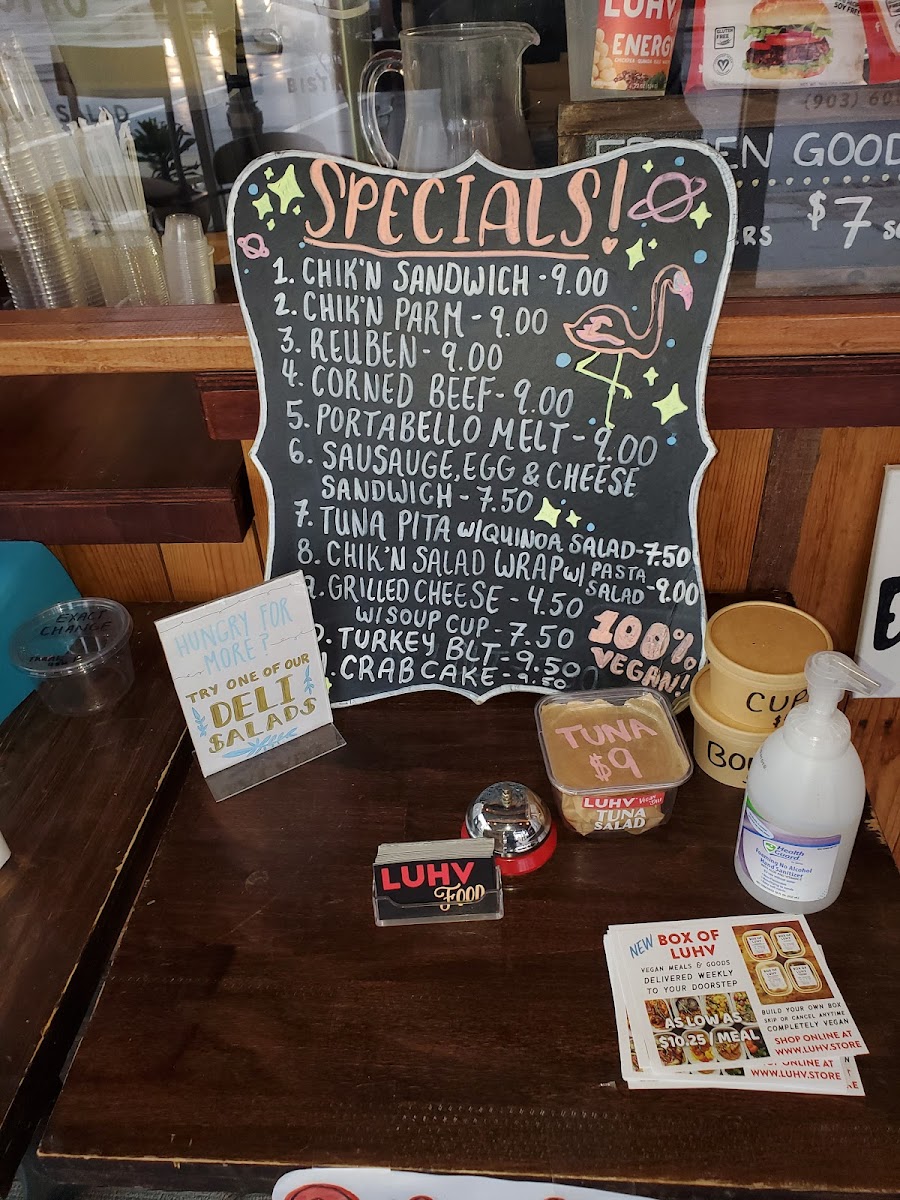 LUHV
ENERGY
GLUTEN FREE
SOY FREE
SALAD
GOOD
$7
SPECIALS!
1. CHIK'N SANDWICH - 9.00
2. CHIK'N PARM - 9.00
3. REUBEN - 9.00
4. CORNED BEEF - 9.00
5. PORTABELLO MELT - 9.00
6. SAUSAUGE, EGG & CHEESE
SANDWICH - 7.50
7. TUNA PITA W/QUINOA SALAD - 7.50
8. CHIK'N SALAD WRAP W/ PASTA
SALAD - 9.00
GRILLED CHEESE - 4.50
W/ SOUP CUP - 7.50
TURKEY BLT - 9.50
CRAB CAKE - 9.50
100%
VEGAN!
EXACT
CHANGE
HUNGRY FOR
MORE?
TRY ONE OF OUR
DELI
SALADS
TUNA
$9
LUHV
TUNA
SALAD
CUP
LUHV
FOOD
Health
Guard
Foaming No Alcohol
Hand Sanitizer
NEW BOX OF
LUHV
VEGAN MEALS & GOODS
DELIVERED WEEKLY
TO YOUR DOORSTEP
AS LOW AS
$10.25 / MEAL
BUILD YOUR OWN BOX
SKIP OR CANCEL ANYTIME
COMPLETELY VEGAN
SHOP ONLINE AT
WWW.LUHV.STORE
ONLINE AT
WWW.LUHV.STORE